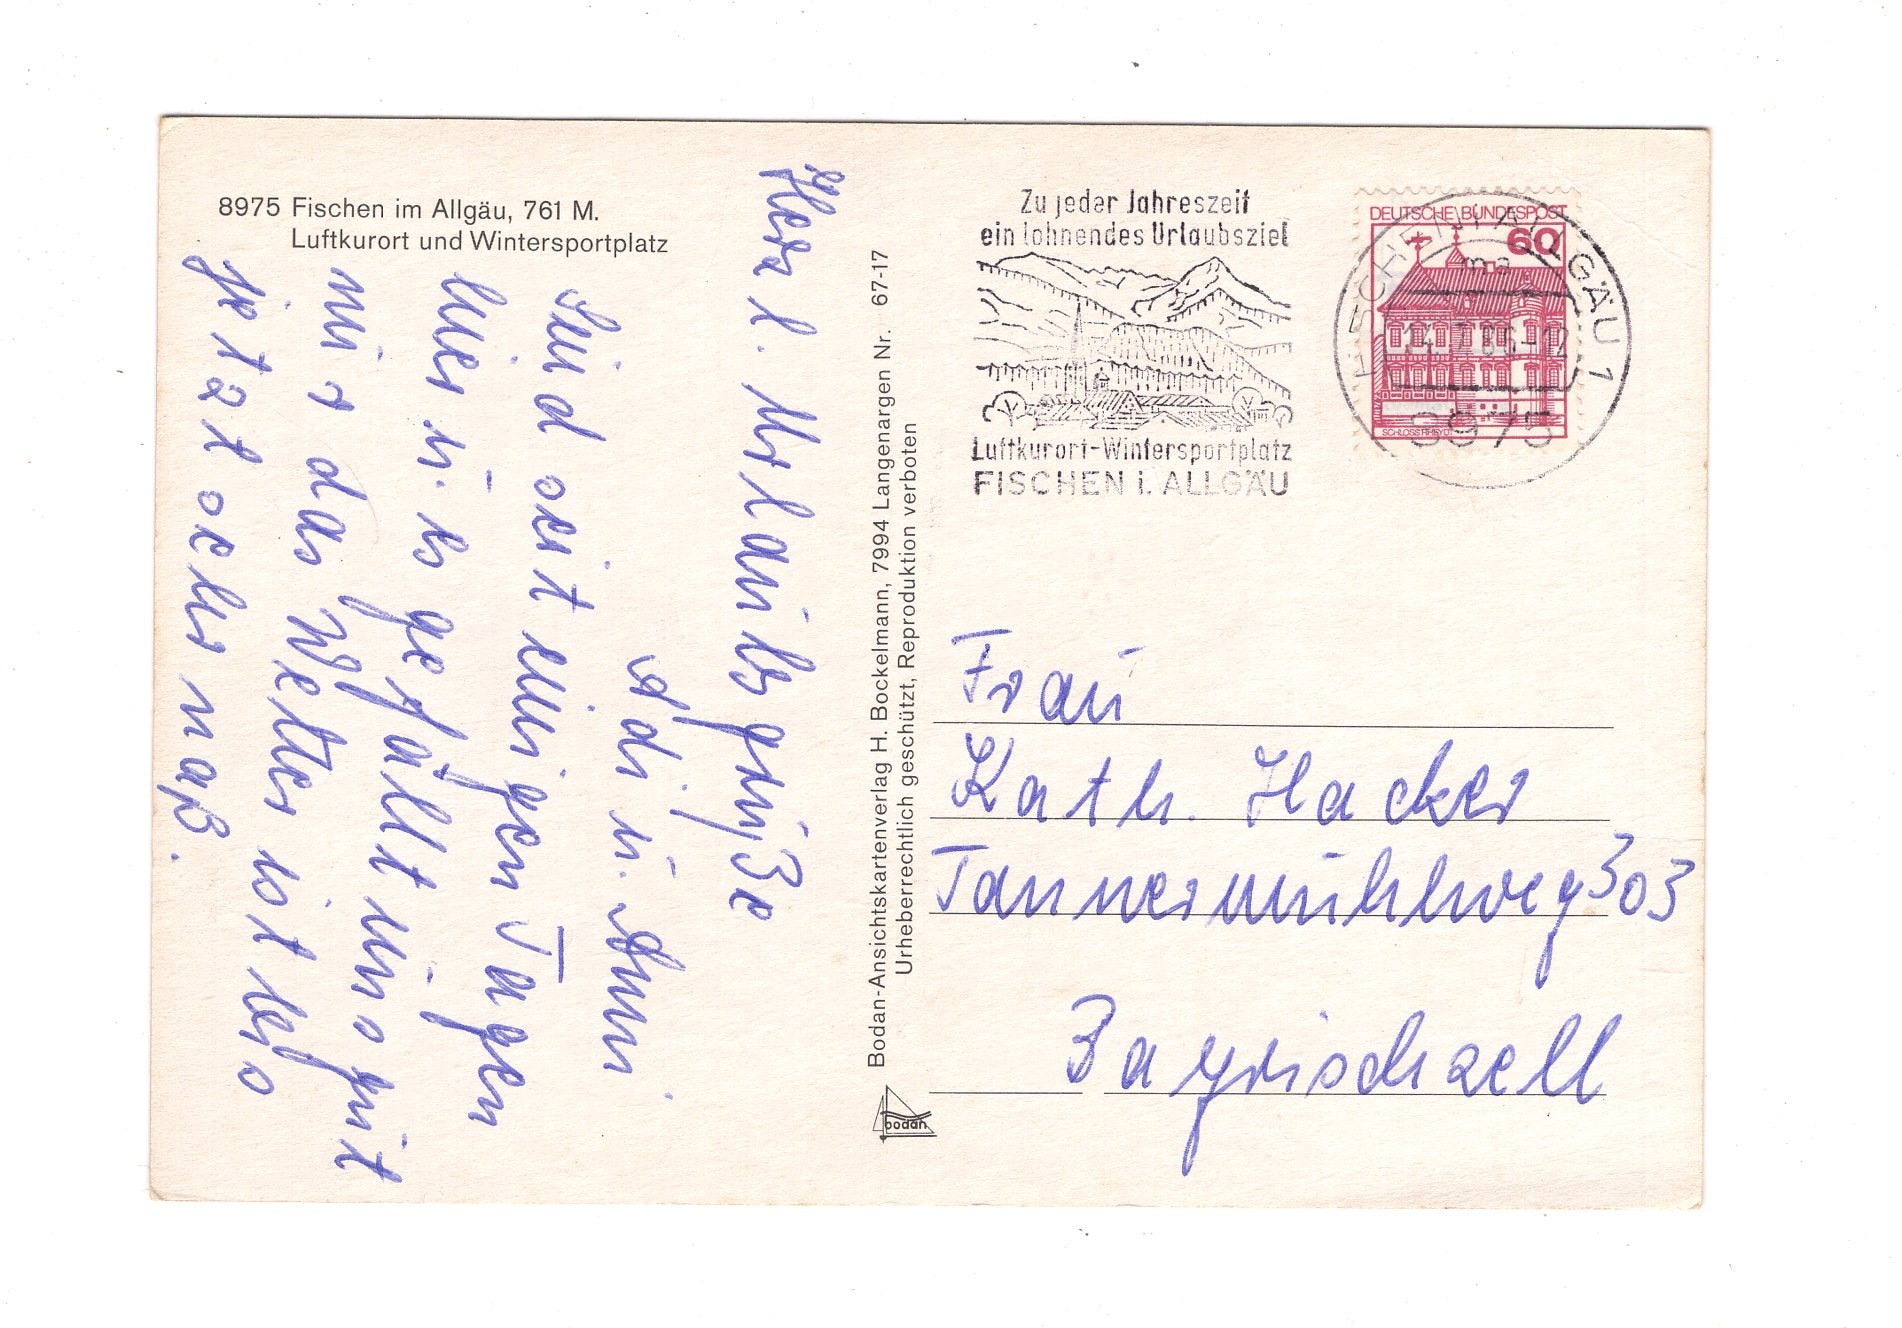 8975 Fischen im Allgäu, 761 M.
Luftkurort und Wintersportplatz
Herzl. Urlaubsgrüße
Adi u. Anni
Sind seit einigen Tagen
hier u. es gefällt uns gut
nur das Wetter ist bis
jetzt sehr naß.
Bodan-Ansichtskartenverlag H. Bockelmann, 7994 Langenargen Nr. 67-17
Urheberrechtlich geschützt, Reproduktion verboten
bodan
Zu jeder Jahreszeit
ein lohnendes Urlaubsziel
Luftkurort-Wintersportplatz
FISCHEN i. ALLGÄU
DEUTSCHE BUNDESPOST
60
SCHLOSS RHEYDT
FISCHEN i. ALLGÄU 1
ma
-12
8975
Frau
Kath. Hacker
Tannermühlweg 303
Bayrischzell